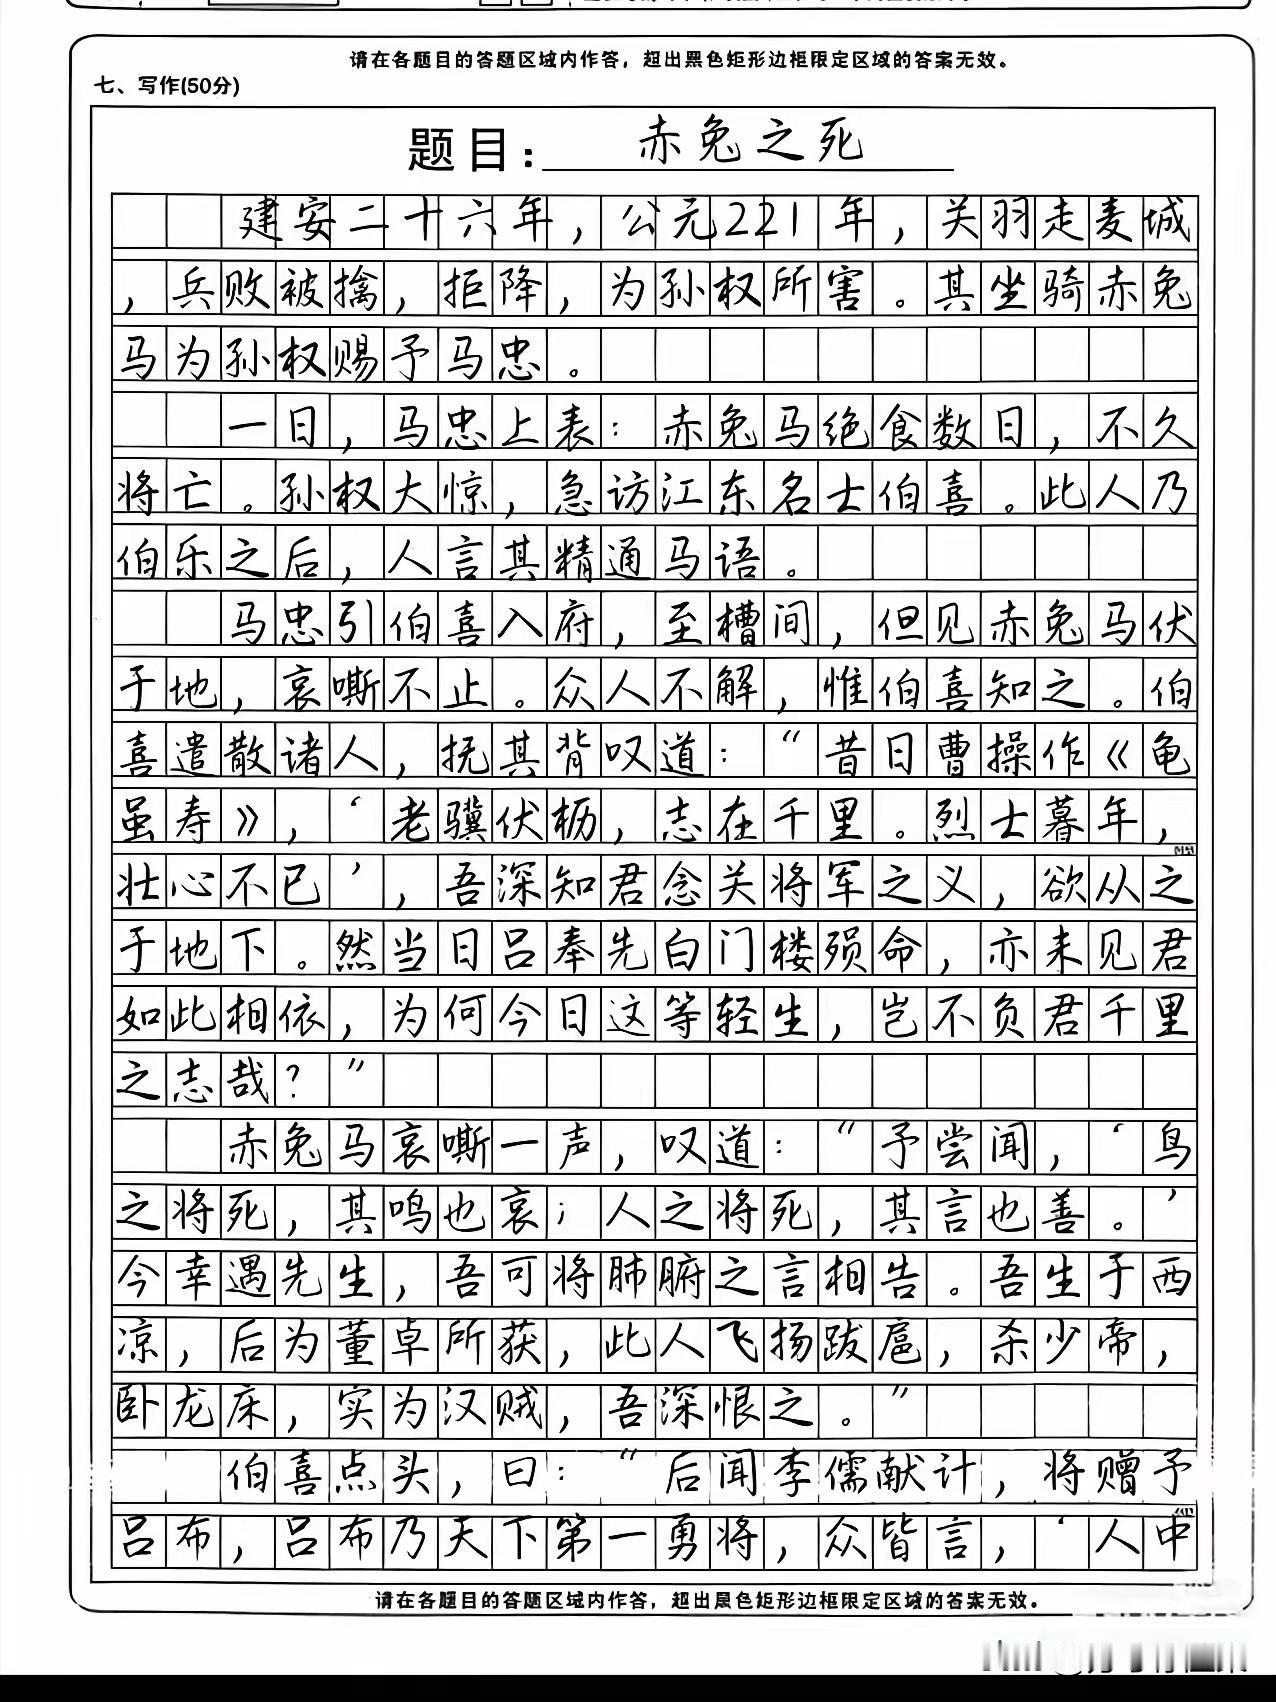 请在各题目的答题区域内作答，超出黑色矩形边框限定区域的答案无效。
七、写作(50分)
题目：赤兔之死
建安二十六年，公元221年，关羽走麦城
，兵败被擒，拒降，为孙权所害。其坐骑赤兔
马为孙权赐予马忠。
一日，马忠上表：赤兔马绝食数日，不久
将亡。孙权大惊，急访江东名士伯喜。此人乃
伯乐之后，人言其精通马语。
马忠引伯喜入府，至槽间，但见赤兔马伏
于地，哀嘶不止。众人不解，惟伯喜知之。伯
喜遣散诸人，抚其背叹道：“昔日曹操作《龟
虽寿》，‘老骥伏枥，志在千里。烈士暮年，
壮心不已’，吾深知君念关将军之义，欲从之
于地下。然当日吕奉先白门楼殒命，亦未见君
如此相依，为何今日这等轻生，岂不负君千里
之志哉？”
赤兔马哀嘶一声，叹道：“予尝闻，‘鸟
之将死，其鸣也哀；人之将死，其言也善。’
今幸遇先生，吾可将肺腑之言相告。吾生于西
凉，后为董卓所获，此人飞扬跋扈，杀少帝，
卧龙床，实为汉贼，吾深恨之。”
伯喜点头，曰：“后闻李儒献计，将赠予
吕布，吕布乃天下第一勇将，众皆言，‘人中
请在各题目的答题区域内作答，超出黑色矩形边框限定区域的答案无效。